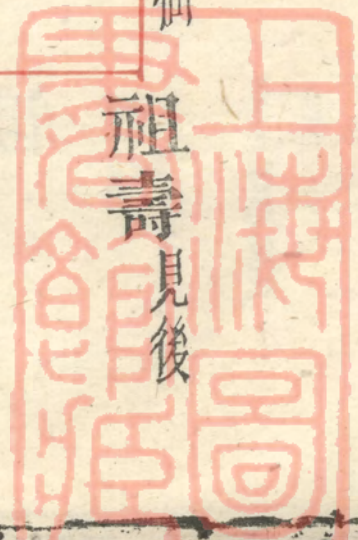 祖壽見後
上海圖
書館藏